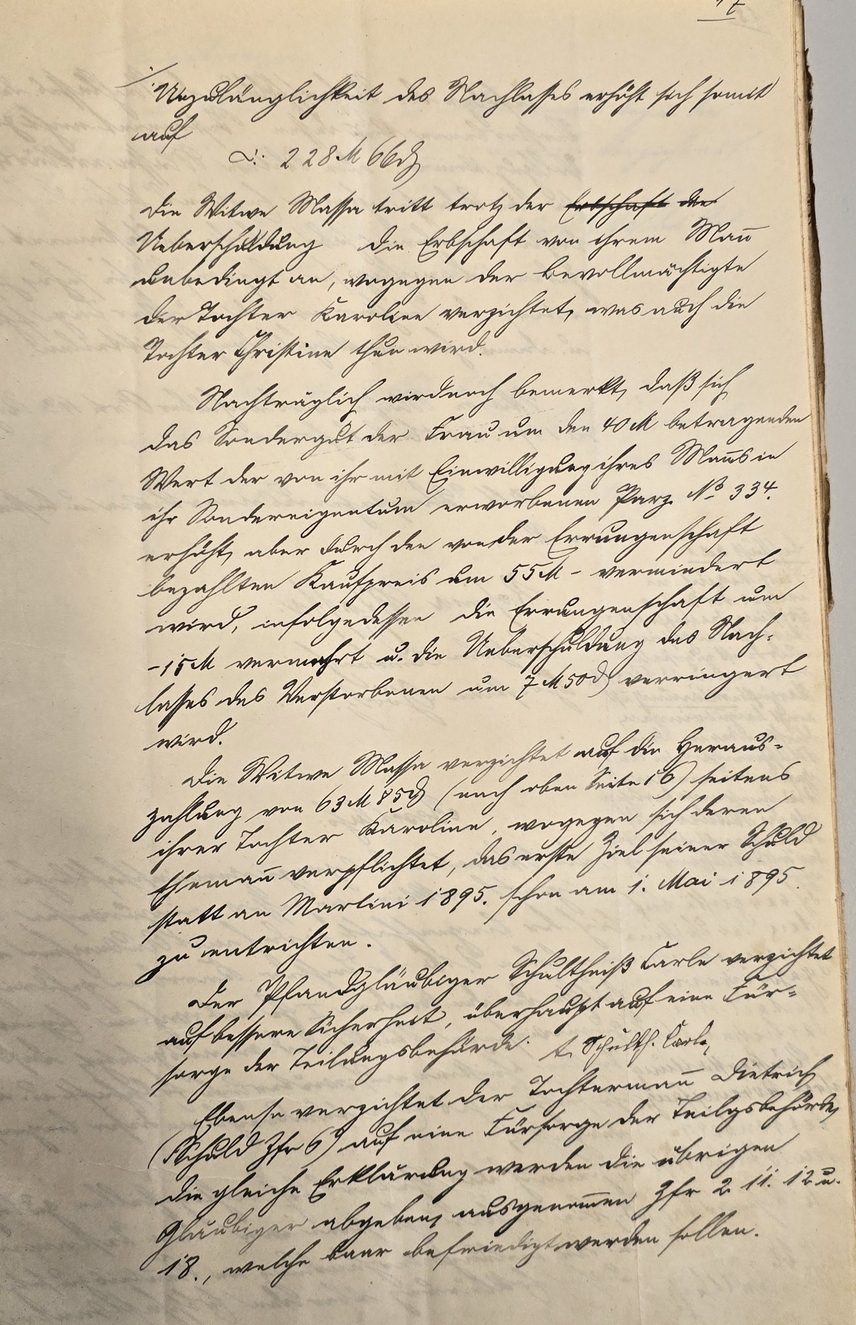 Unzulänglichkeit des Nachlasses erhöht sich somit
auf
228 M 66 d
Die Witwe Massa tritt trotz der Erbschaft der
Ueberschuldung die Erbschaft von ihrem Mann
unbedingt an, wogegen der Bevollmächtigte
der Tochter Karoline verzichtet, was auch die
Tochter Christine thun wird.
Nachträglich wird noch bemerkt, daß sich
das Sondergut der Frau um den 40 M betragenden
Wert der von ihr mit Einwilligung ihres Manns in
ihr Sondereigentum erworbenen Parz. No 334.
erhöht, aber durch den von der Errungenschaft
bezahlten Kaufpreis um 55 M - vermindert
wird, infolgedessen die Errungenschaft um
- 15 M vermehrt u. die Ueberschuldung des Nach-
lasses des Verstorbenen um 7 M 50 d verringert
wird.
Die Witwe Massa verzichtet auf die Heraus-
zahlung von 63 M 85 d (nach oben Seite 16) seitens
ihrer Tochter Karoline, wogegen sich deren
Ehemann verpflichtet, das erste Ziel seiner Schuld
statt an Martini 1895. schon am 1. Mai 1895.
zu entrichten.
Der Pfandgläubiger Schultheiß Carle verzichtet
auf bessere Sicherheit, überhaupt auf eine Für-
sorge der Teilungsbehörde. t. Schulth. Carle,
Ebenso verzichtet der Tochtermann Dietrich
(Schuld Zfr 6) auf eine Fürsorge der Teilgsbehörde,
die gleiche Erklärung werden die übrigen
Gläubiger abgeben, ausgenommen Zfr 2 11. 12 u.
18., welche baar befriedigt werden sollen.